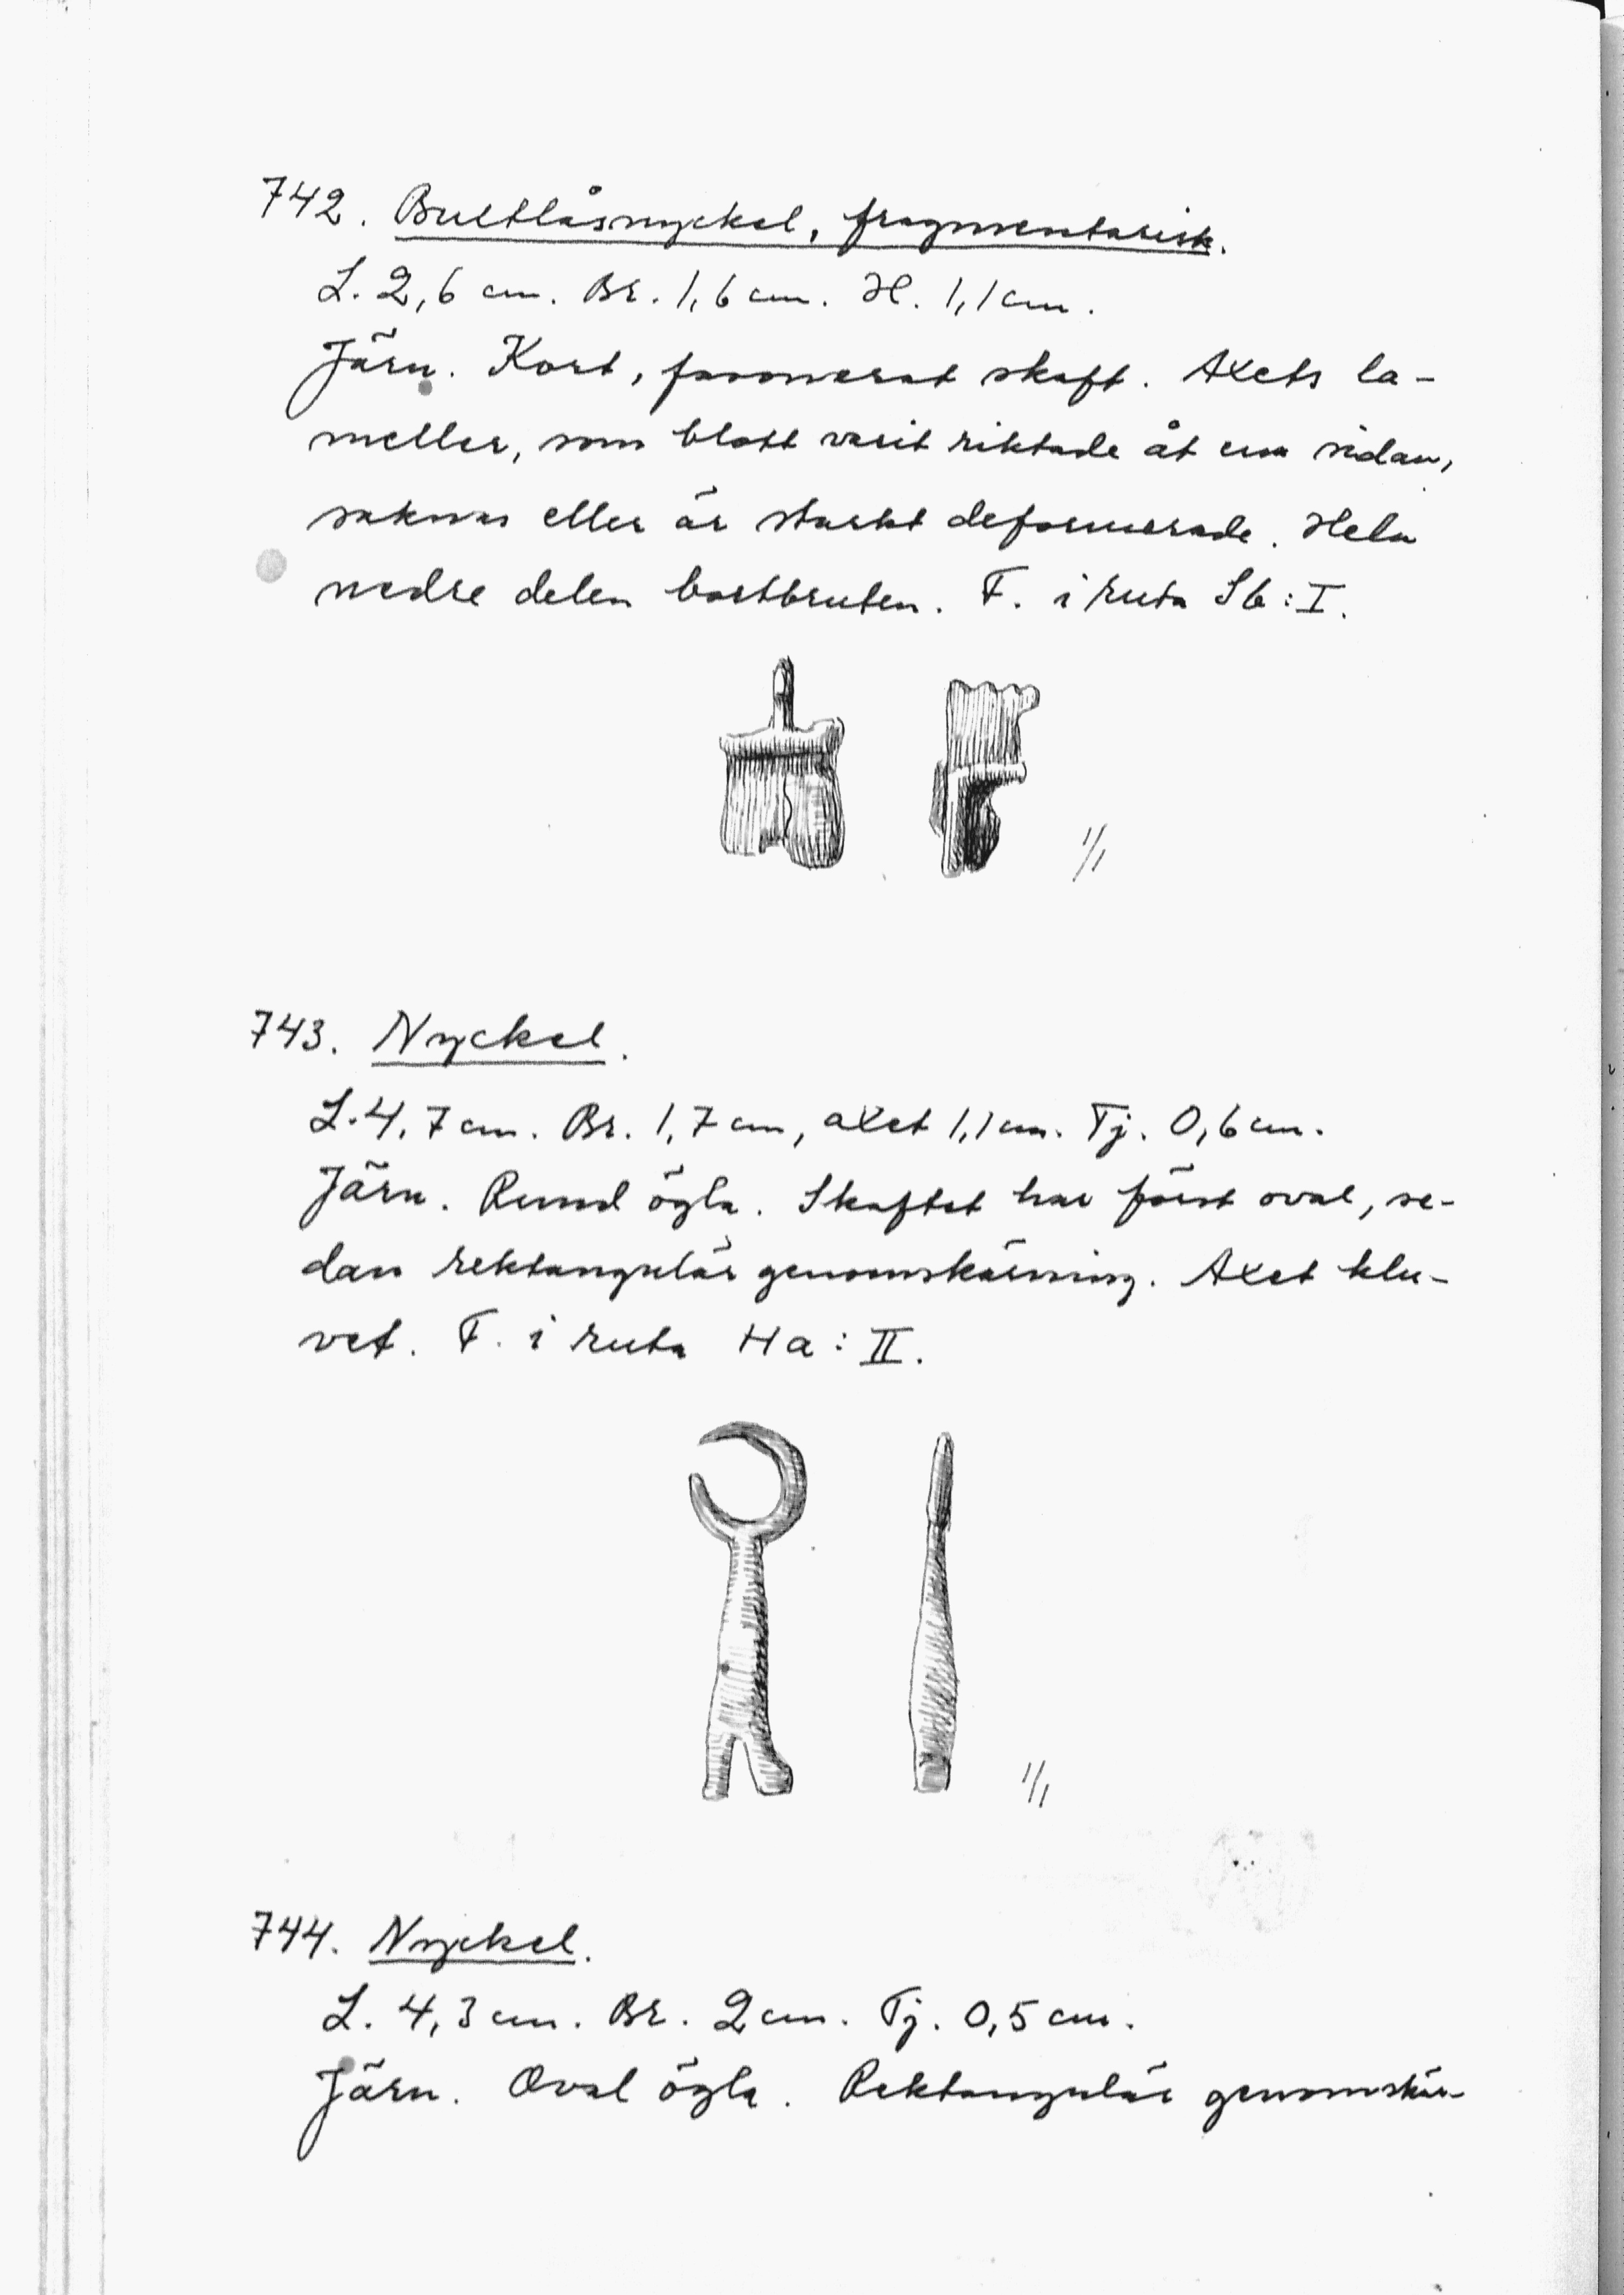 742. Bultlåsnyckel, fragmentarisk.
L. 2,6 cm. Br. 1,6 cm. H. 1,1 cm.
Järn. Kort, fasonerat skaft. Axets la-
meller, som blott varit riktade åt ena sidan,
saknas eller är starkt deformerade. Hela
nedre delen bortbruten. F. i ruta Sb:I.
1/1
743. Nyckel.
L. 4,7 cm. Br. 1,7 cm, axet 1,1 cm. Tj. 0,6 cm.
Järn. Rund ögla. Skaftet har först oval, se-
dan rektangulär genomskärning. Axet klu-
vet. F. i ruta Ha:II.
1/1
744. Nyckel.
L. 4,3 cm. Br. 2 cm. Tj. 0,5 cm.
Järn. Oval ögla. Rektangulär genomskär-